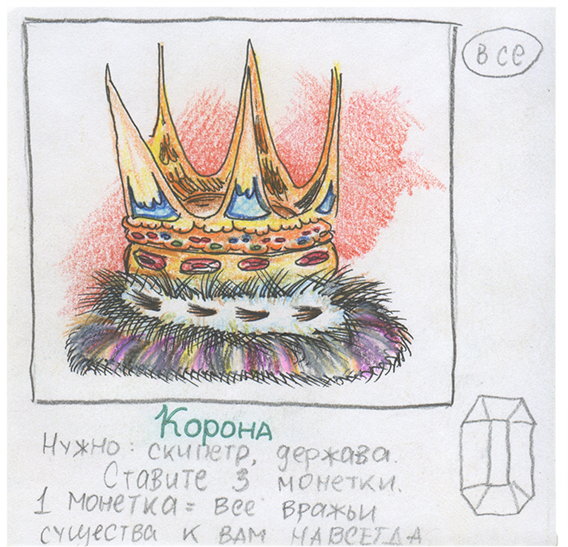 все
Корона
Нужно: скипетр, держава.
Ставите 3 монетки.
1 монетка = все вражьи
существа к вам НАВСЕГДА